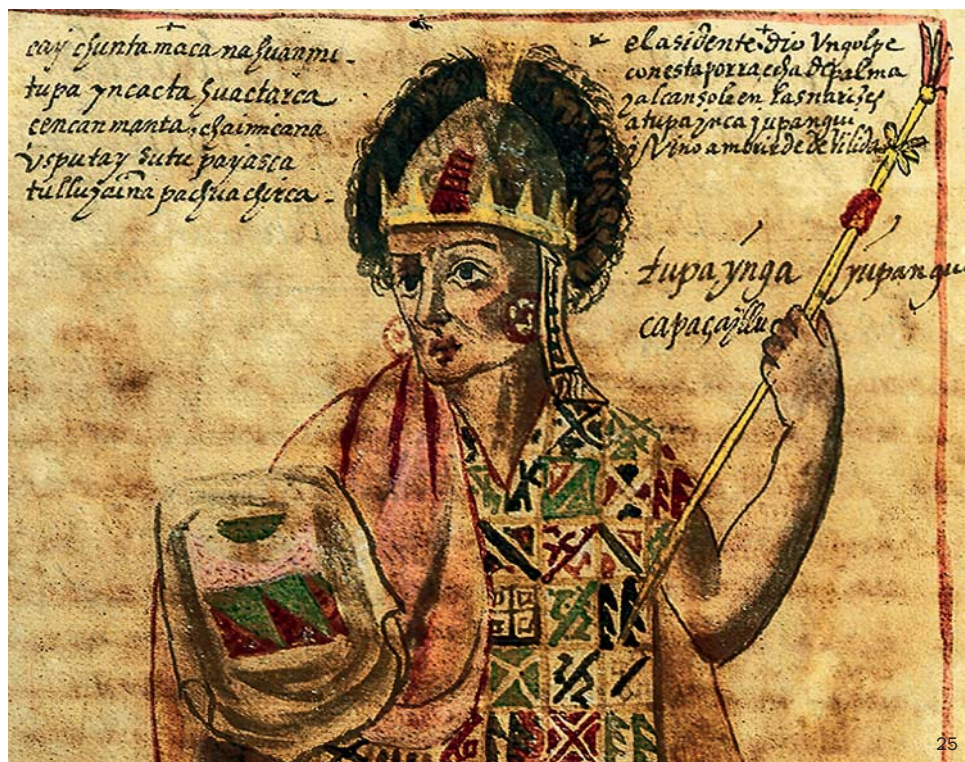 cay chunta maca nahuanmi -
tupa yncacta huactarca
cencanmanta, chaimicana
Ysputay sutu payasca
tulluzaina pachuachirca -
el asidente dio Vn golpe
con esta porra echa de palma
y alcansole en las narizes
a tupa ynca yupangui
y Vino a morir de
tupa ynga yupangu
capac ayllu
25